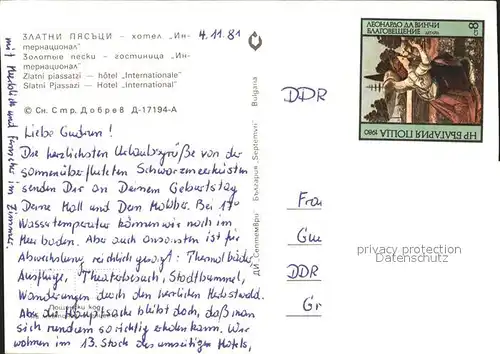 ЗЛАТНИ ПЯСЪЦИ – хотел „Ин-
тернационал"
Золотые пески – гостиница „Ин-
тернационал"
Zlatni piassatzi – hôtel „Internationale"
Slatni Pjassazi – Hotel „International"
© Сн. Стр. Добрев Д-17194-А
4.11.81
Liebe Gudrun!
Die herzlichsten Urlaubsgrüße von der
sonnenüberfluteten Schwarzmeerküsten
senden Dir an Deinem Geburtstag
Deine Moll und Dein Mobber. Bei 17°
Wassertemperatur können wir noch im
Meer baden. Aber auch ansonsten ist für
Abwechslung reichlich gesorgt: Thermalbäder
Ausflüge, Theaterbesuch, Stadtbummel,
Wanderungen durch den herrlichen Herbstwald.
Aber die Hauptsache bleibt doch, daß man
sich rundum so richtig erholen kann. Wir
wohnen im 13. Stock des umseitigen Hotels,
mit Meerblick und Fernseher im Zimmer.
Пощенски код
ДИ „Септември" България „Septemvri" Bulgaria
DDR
Frau
Gu
DDR
Gr
ЛЕОНАРДО ДА ВИНЧИ
БЛАГОВЕЩЕНИЕ
детайл
8 ст
НР БЪЛГАРИЯ ПОЩА 1980
privacy protection
Datenschutz